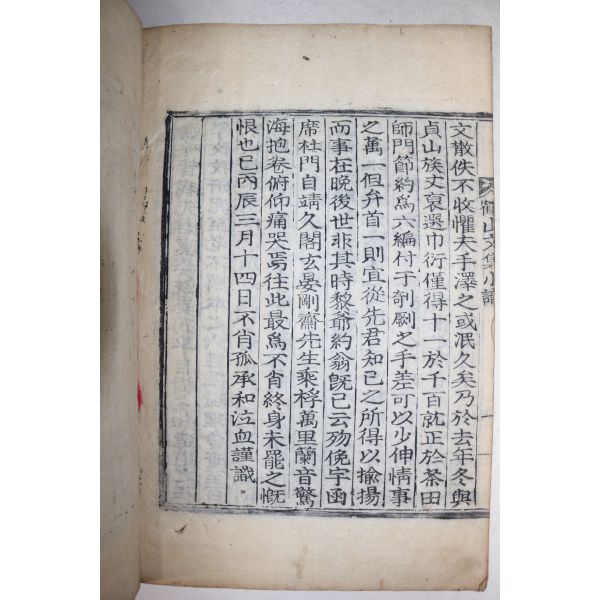 文散佚不收懼夫手澤之或泯久矣乃於去年冬與
貞山族丈裒選巾衍僅得十一於千百就正於茶田
師門節約爲六編付于剞劂之手差可以少伸情事
之萬一但弁首一則宜從先君知己之所得以揄揚
而事在晩後世非其時黎爺約翁旣已云歿俛宇函
席杜門自靖久閣玄晏剛齋先生乘桴萬里蘭音驚
海抱卷俯仰痛哭焉往此最爲不肖終身未罷之慨
恨也已丙辰三月十四日不肖孤承和泣血謹識
山文集小識